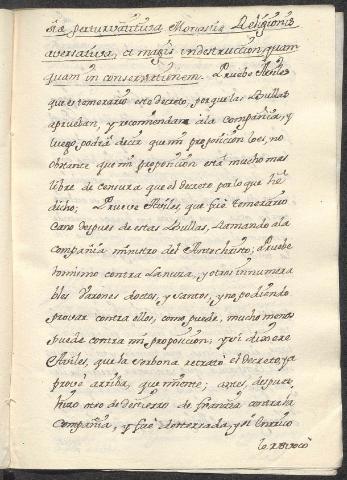 sia perturvatitura Monastia Religionis
aversatura, et magis indestruccion, quam
quam in conservationem. Pruebe Aviles
que es temerario este decreto, porque las Bullas
aprueban, y recomendan a la Compañia, y
luego podrà decir que mi proposicion lo es, no
obstante que mi proposicion està mucho mas
libre de censura que el Decreto por lo que hè
dicho; Prueve Aviles, que fuè temerario
Cano despues de estas Bullas, llamando ala
compañia ministro del Antechristo; Pruebe
lo mismo contra Lanuza, y otros innumera
bles Varones doctos, y Santos, y no pudiendo
provar contra ellos, como puede, mucho menos
puede contra mi proposicion; y si dixere
Aviles, que la Sorbona retratò el Decreto, ya
provè arriba, que miente; antes, despues
hizo otro de destierro de Francia contra la
Compañia, y fuè desterrada, y si Enrico
lo revocò